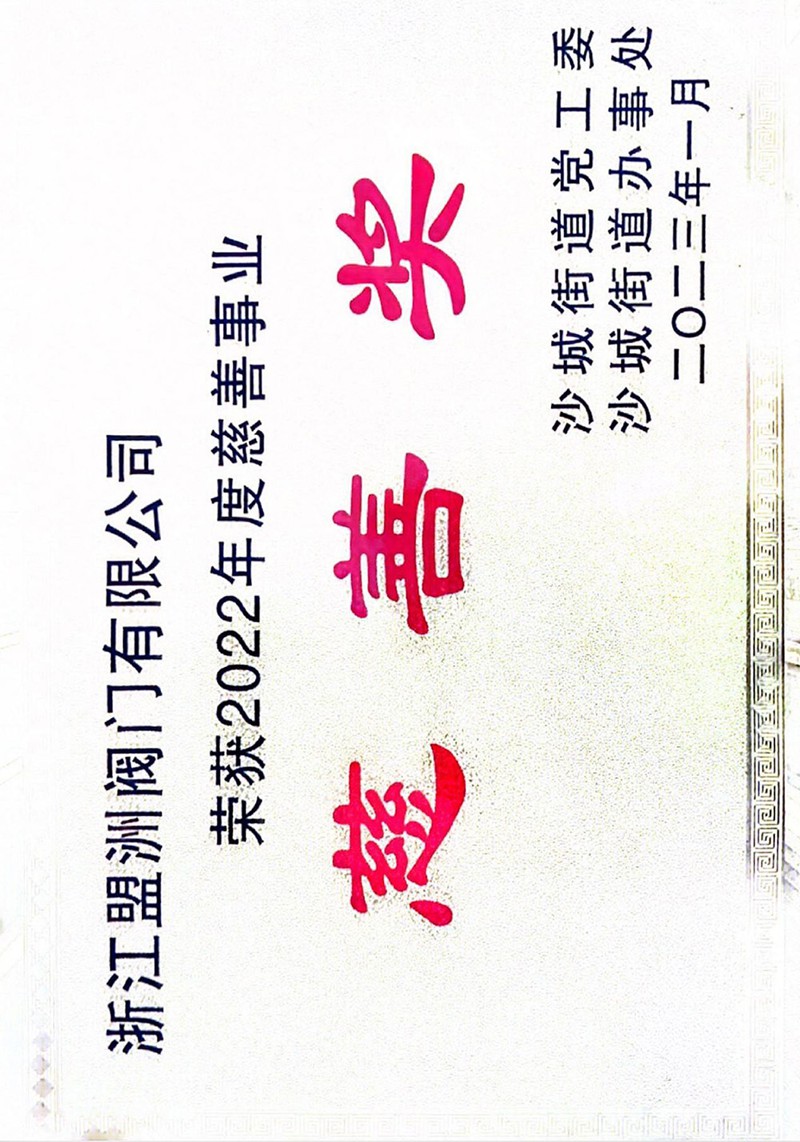 浙江盟洲阀门有限公司
荣获2022年度慈善事业
慈善奖
沙城街道党工委
沙城街道办事处
二〇二三年一月